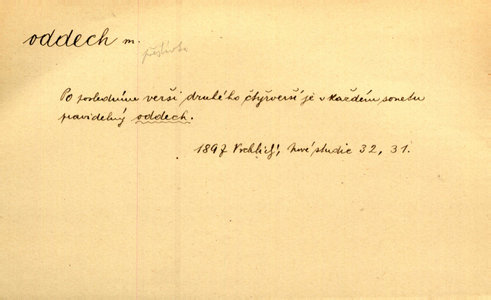 oddech m.
přestávka
Po posledním verši druhého čtyřverší je v každém sonetu
pravidelný oddech.
1897 Vrchlický, Nové studie 32, 31.